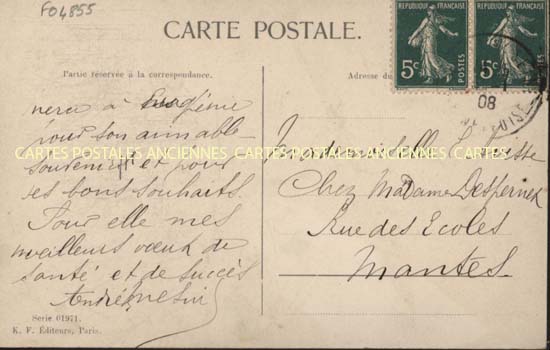 F04855
CARTE POSTALE.
RÉPUBLIQUE FRANÇAISE
5c POSTES
RÉPUBLIQUE FRANÇAISE
5c POSTES
08
Partie réservée à la correspondance.
Adresse du
merci à Eugénie
pour son aimable
souvenir et pour
ses bons souhaits.
Pour elle mes
meilleurs vœux de
santé et de succès
CARTES POSTALES ANCIENNES CARTES POSTALES ANCIENNES CARTES POSTALES
Mademoiselle
Chez Madame Despernex
Rue des Ecoles
Mantes.
Serie 01971.
K. F. Éditeurs, Paris.